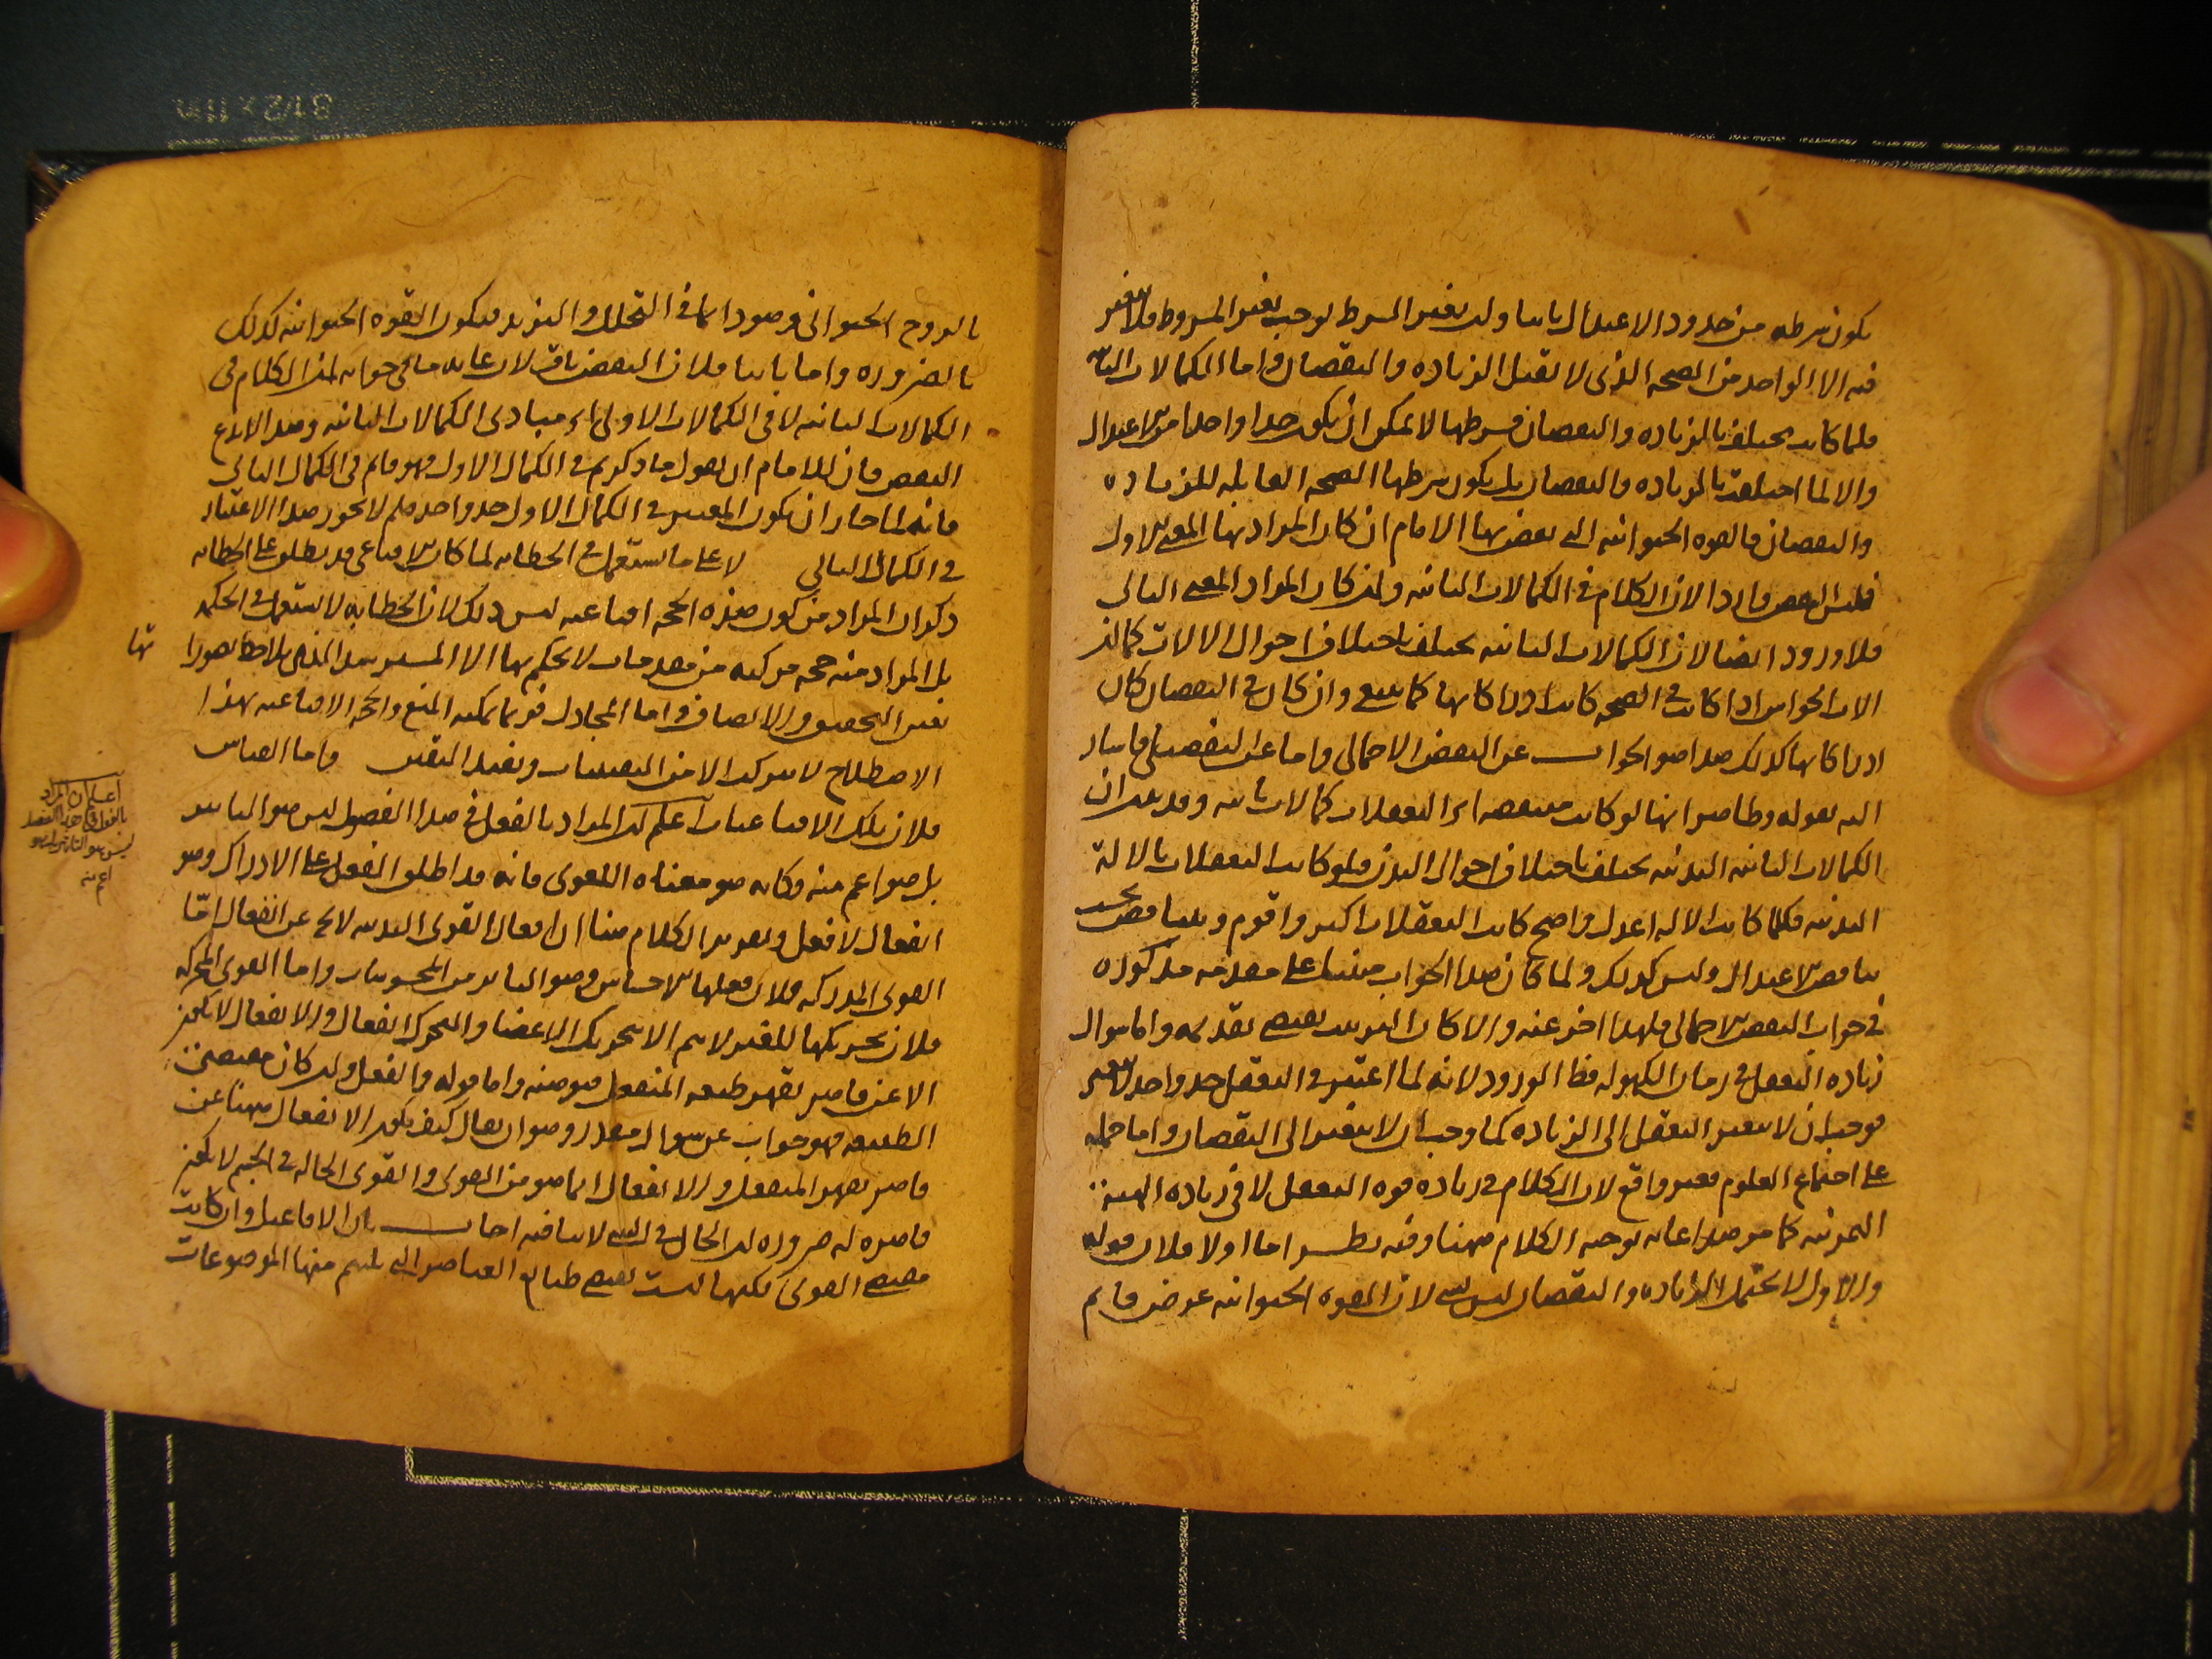 يكون شرطه من حدود الاعتدال ثابتا ولن تغير الشرط يوجب تغير المشروط فلا تتغير
فيه الا الواحد من الصحه الذى لا تقبل الزياده والنقصان واما الكمالات الثانيه
فلما كانت تختلف بالزياده والنقصان فشرطها لا يمكن ان يكون حدا واحدا من الاعتدال
والا لما اختلفت بالزياده والنقصان بل يكون شرطها الصحه القابله للزياده
والنقصان فالقوه الحيوانيه التى نقض بها الامام ان كان المراد بها المعنى الاول
فليس النقض واردا لان الكلام فى الكمالات الثانيه ولن كان المراد المعنى الثانى
فلا ورود ايضا لان الكمالات الثانيه تختلف باختلاف احوال الالات كما ان
الات الحواس اذا كانت فى الصحه كانت ادراكاتها كما ينبغى وان كان فى النقصان كان
ادراكاتها كذلك هذا هو الجواب عن النقض الاجمالى واما عن التفصيلى فاشار
اليه بقوله وظاهر انها لو كانت مقتضيه اى التعقلات كمالات ثانيه وقد تقرر ان
الكمالات الثانيه البدنيه تختلف باختلاف احوال البدن فلو كانت التعقلات بالالة
البدنيه فكلما كانت الاله اعدل واصح كانت التعقلات اكثر واقوم وتتناقص بحسب
تناقص الاعتدال وليس كذلك ولما كان هذا الجواب مبنيا على مقدمه مذكوره
فى جواب النقض الاجمالى فلهذا اخر عنه والا كان الترتيب يقتضى تقديمه واما سوال
زياده التعقل فى زمان الكهوله فظ الورود لانه لما اعتبر فى التعقل حد واحد لا يتغير
فوجب ان لا يتغير التعقل الى الزياده كما وجب ان لا يتغير الى النقصان واما حمله
على اجتماع العلوم فغير واقع لان الكلام فى زياده قوه التعقل لا فى زياده الهيئة
التمرنيه كما مر هذا غايه توجيه الكلام ههنا وفيه نظر اما اولا فلان قوله
والاول لا يحتمل الزياده والنقصان ليس بشى لان القوه الحيوانيه عرض قايم
بالروح الحيوانى وهو دائما فى التحلل والتزيد فيكون القوه الحيوانيه كذلك
بالضروره واما ثانيا فلان النقض باق لان غايه ما فى جوابه لهذا الكلام فى
الكمالات الثانيه لا فى الكمالات الاولى اى مبادى الكمالات الثانيه وهذا لا يدفع
النقض فان للامام ان يقول ما ذكرتم فى الكمال الاول فهو قايم فى الكمال الثانى
فانه لما جاز ان يكون المعتبر فى الكمال الاول حد واحد فلم لا يجوز هذا الاعتبار
فى الكمال الثانى لا على ما يستعمل فى الخطابه لما كان الاقناعى قد يطلق على الخطابه
ذكر ان المراد من كون هذه الحجه اقناعيه ليس ذلك لان الخطابه لا يستعمل فى الحكمه
بل المراد منه حجه مركبه من مقدمات لا يحكم بها الا المسترشد الذى يلاحظ تصوراتها
بعين التحقيق والانصاف واما المجادل فربما يمكنه المنع والحجه الاقناعيه بهذا
الاصطلاح لا يتركب الا من اليقينيات وتفيد اليقين واما القياس
فلان تلك الاقناعيات اعلم ان المراد بالفعل فى هذا الفصل ليس هو التاثير
بل هو اعم منه وكانه هو معناه اللغوى فانه قد اطلق الفعل على الادراك وهو
انفعال لا فعل وتقرير الكلام هنا ان افعال القوى البدنيه لا يخ عن انفعال امّا
القوى المدركه فلان فعلها الاحساس وهو التاثر من المحسوسات واما القوى المحركه
فلان تحريكها للغير لا يتم الا بتحريك الاعضا والتحرك انفعال والانفعال لا يكون
الا عن قاهر يقهر طبيعه المنفعل فيوهنه واما قوله والفعل ولن كان مقتضى
الطبيعه فهو جواب عن سوال مقدر وهو ان يقال كيف يكون الانفعال ههنا عن
قاهر يقهر المنفعل والانفعال انما هو من القوى والقوى الحاله فى الجسم لا يكون
قاهره له ضروره لن الحال فى الشى لا ينافيه اجاب بان الافاعيل وان كانت
مقتضى القوى لكنها ليست بمقتضى طبائع العناصر التى يلتيم منها الموضوعات
اعلم ان المراد
بالفعل فى هذا الفصل
ليس هو التاثير بل هو
اعم منه